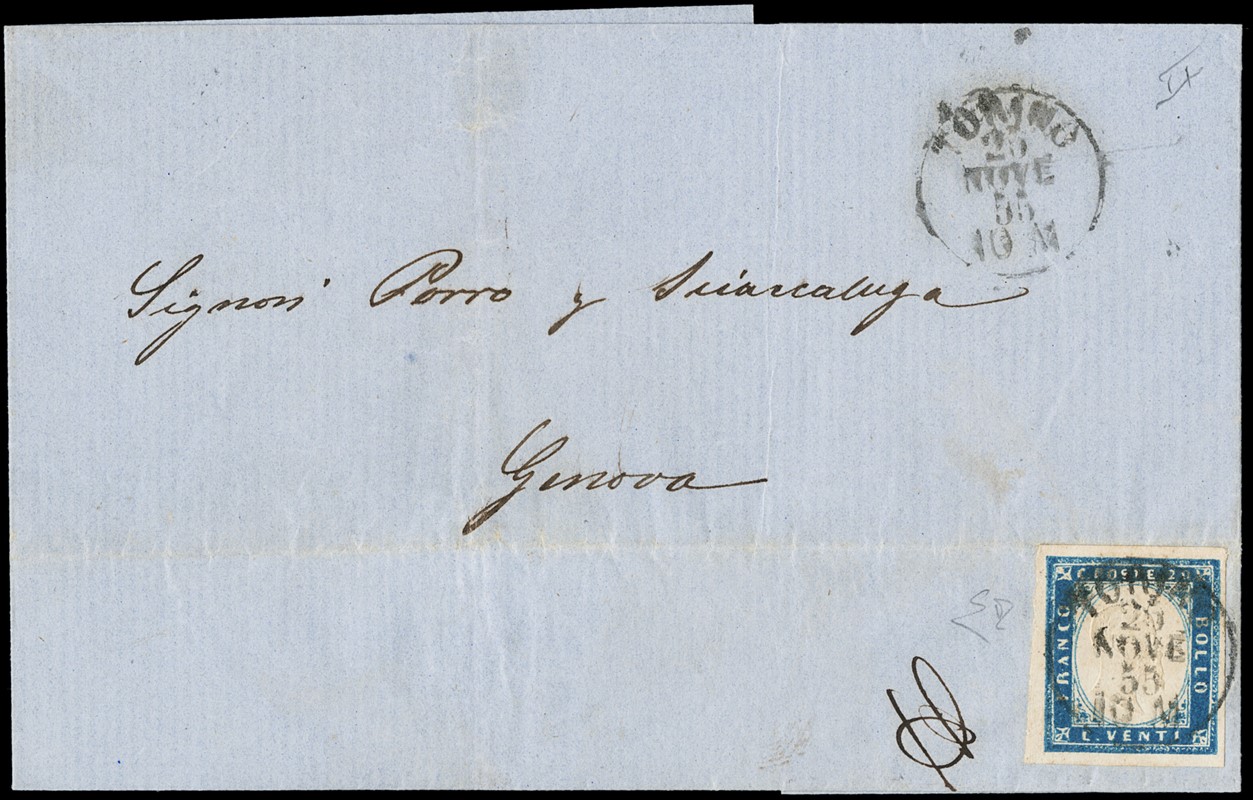 TORINO
25
NOVE
55
10 M
Signori Porro y Sciaccaluga
Genova
C. POSTE 20
FRANCO
BOLLO
L. VENTI
TORINO
25
NOVE
55
10 M